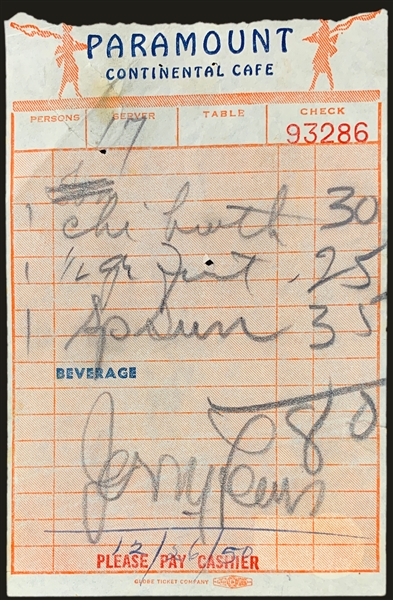 PARAMOUNT
CONTINENTAL CAFE
PERSONS SERVER TABLE CHECK
17 93286
1 chi broth 30
1 1/2 gr .25
1 35
BEVERAGE
80
Jerry Lewis
12/26/50
PLEASE PAY CASHIER
GLOBE TICKET COMPANY